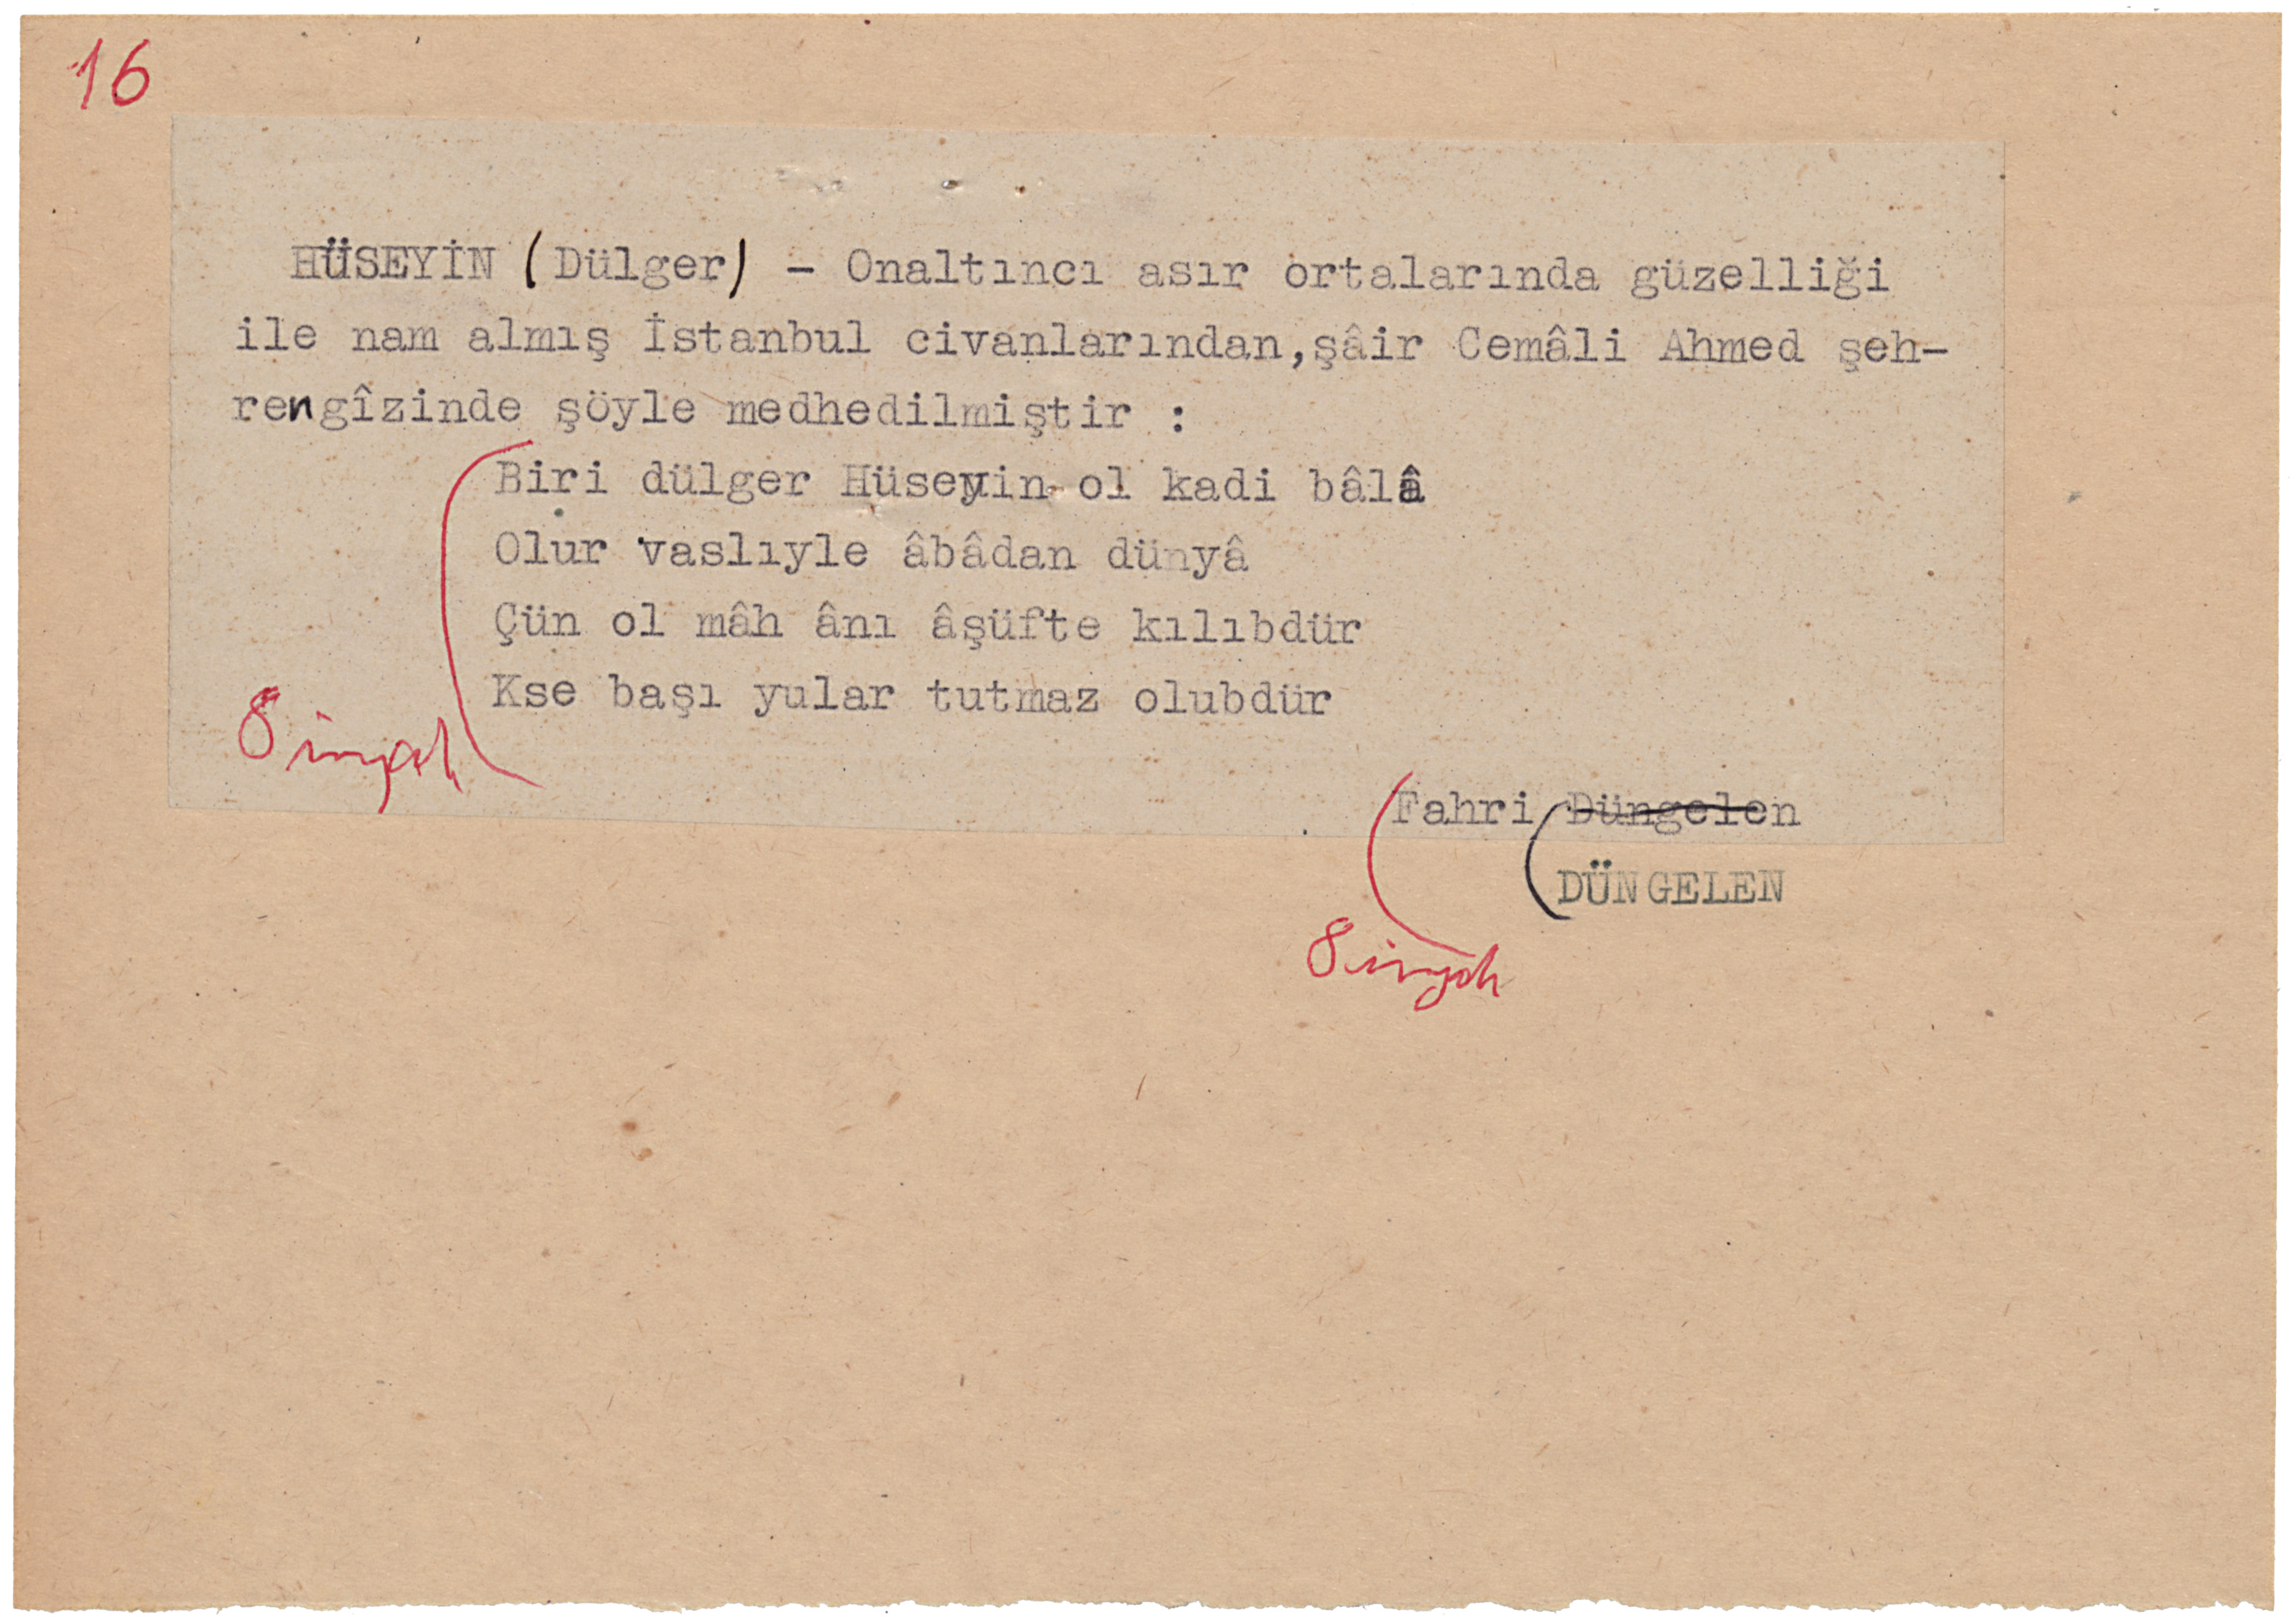 16
HÜSEYİN (Dülger) - Onaltıncı asır ortalarında güzelliği
ile nam almış İstanbul civanlarından,şâir Cemâli Ahmed şeh-
rengîzinde şöyle medhedilmiştir :
Biri dülger Hüseyin ol kadi bâlâ
Olur vaslıyle âbâdan dünyâ
Çün ol mâh ânı âşüfte kılıbdür
Kse başı yular tutmaz olubdür
8 siyah
Fahri Düngelen
DÜNGELEN
8 siyah